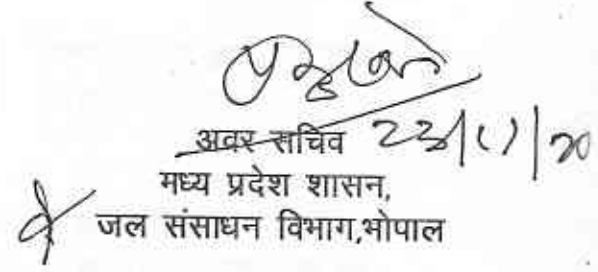 अवर सचिव
मध्य प्रदेश शासन,
जल संसाधन विभाग,भोपाल